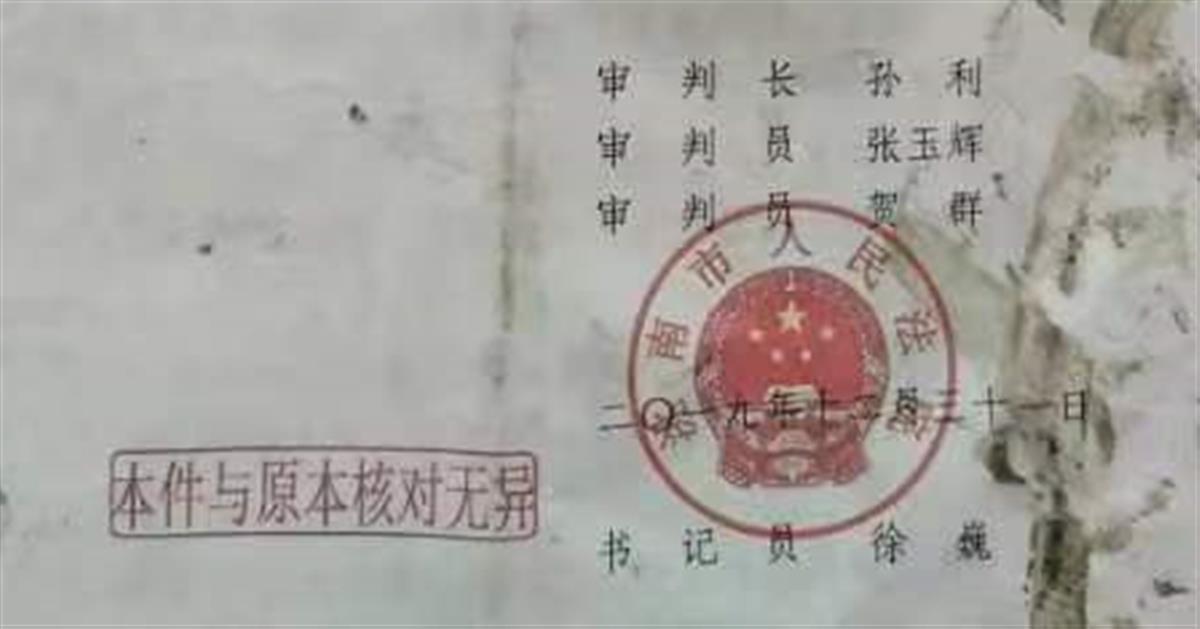 审 判 长 孙 利
审 判 员 张玉辉
审 判 员 贺 群
南市人民法院
二〇一九年十二月三十一日
本件与原本核对无异
书 记 员 徐 巍